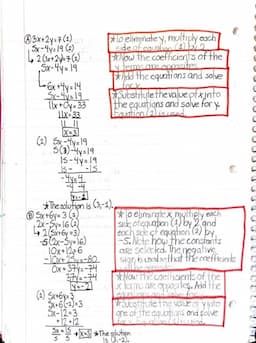 Ⓐ 3x+2y=7 (1)
5x-4y=19 (2)
↳ 2(3x+2y=7)(1)
5x-4y=19
6x+4y=14
5x-4y=19
11x+0y=33
11x=33
11 11
x=3
(2) 5x-4y=19
5(3)-4y=19
15-4y=19
15- -15
-4y=4
-4 -4
y=-1
*The solution is (3,-1).
*To eliminate y, multiply each
side of equation (1) by 2
*Now the coefficients of the
y terms are opposites
*Add the equations and solve
for x.
*Substitute the value of x into
the equations and solve for y.
Equation (2) is used
Ⓑ 5x+6y=3 (1)
2x-5y=16 (2)
2(5x+6y=3)
-5(2x-5y=16)
10x+12y=6
-10x+25y=-80
0x+37y=-74
37y=-74
y=-2
(1) 5x+6y=3
5x+6(-2)=3
5x-12=3
+12 +12
5x=15
5 5
x=3
*The solution
is (3,-2).
*To eliminate x, multiply each
side of equation (1) by 2 and
each side of equation (2) by
-5. Note how the constants
are selected. The negative
sign is used so that the coefficients
*Now the coefficients of the
x terms are opposites. Add the
equations and solve for
*Substitute the value of y into
one of the equations and solve